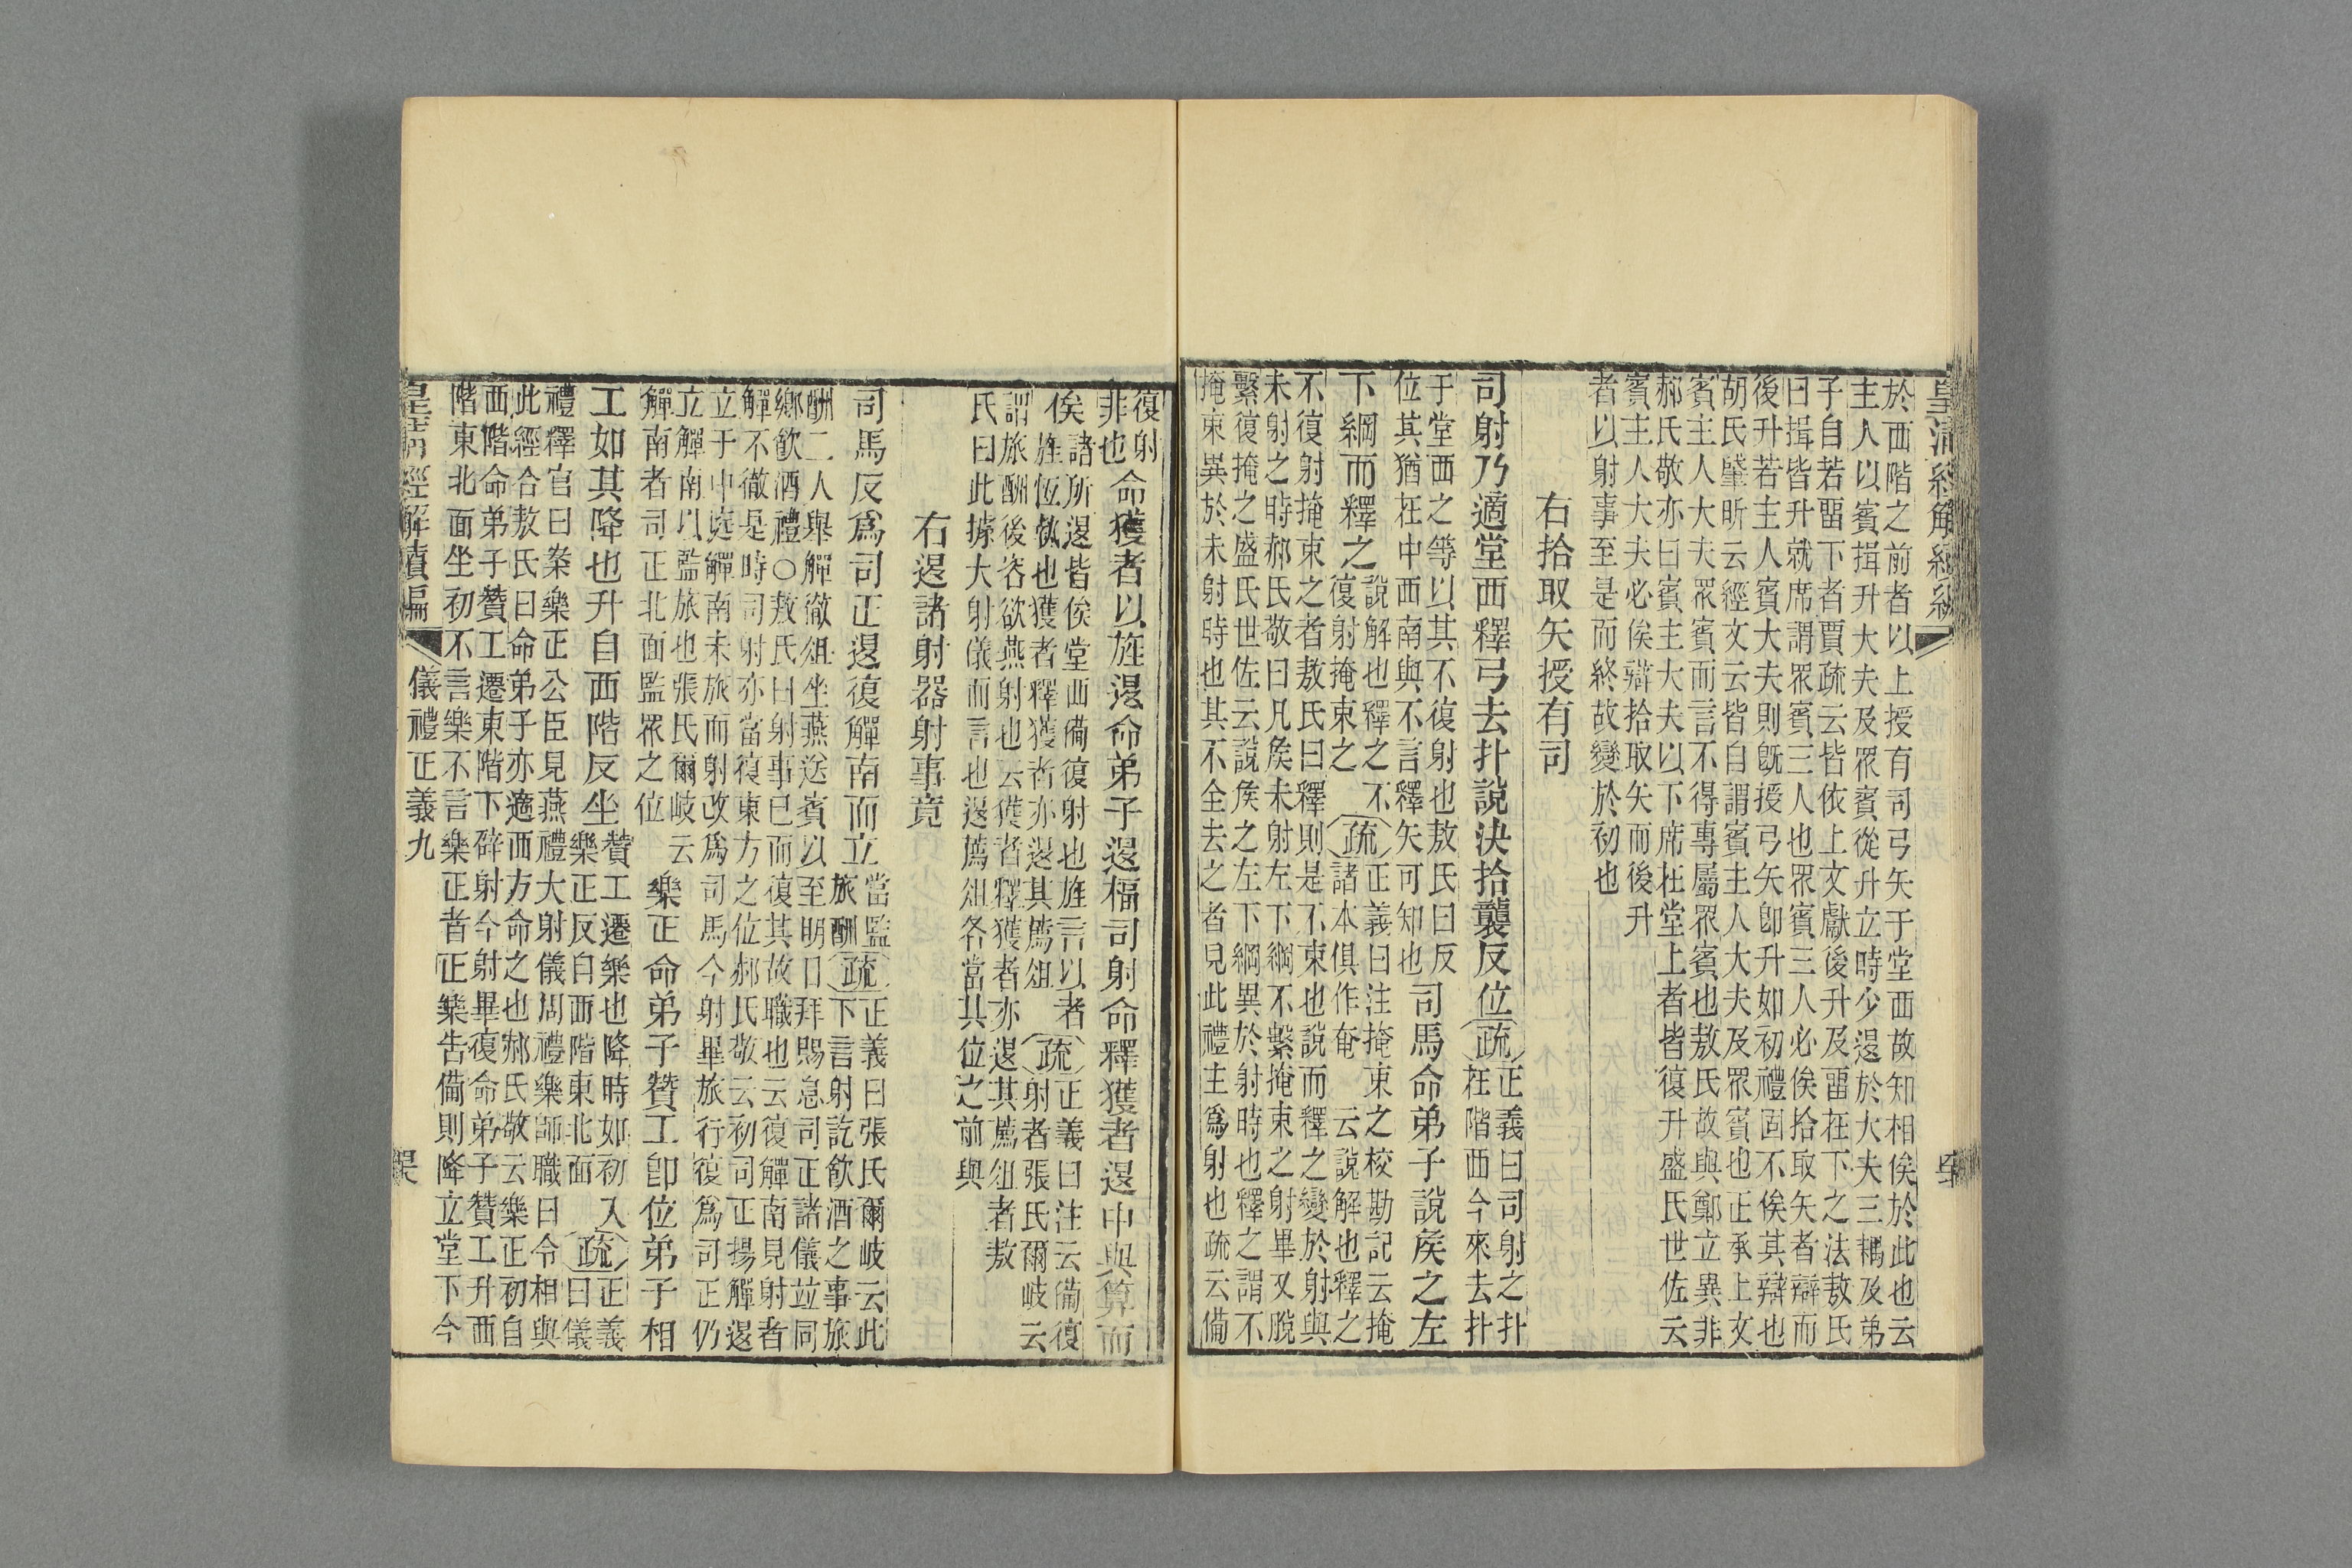 皇清經解續編
於西階之前者以上授有司弓矢于堂西故知相俟於此也云
主人以賓揖升大夫及眾賓從升立時少退於大夫三耦及弟
子自若留下者賈疏云皆依上文獻後升及留在下之法敖氏
曰揖皆升就席謂眾賓三人也眾賓三人必俟拾取矢者辯而
後升若主人賓大夫則既授弓矢卽升如初禮固不俟其辯也
胡氏肇昕云經文云皆自謂賓主人大夫及眾賓也正承上文
賓主人大夫眾賓而言不得專屬眾賓也敖氏故與鄭立異非
郝氏敬亦曰賓主大夫以下席在堂上者皆復升盛氏世佐云
賓主人大夫必俟辯拾取矢而後升
者以射事至是而終故變於初也
右拾取矢授有司
司射乃適堂西釋弓去扑說決拾襲反位疏正義曰司射之扑
在階西今來去扑
于堂西之等以其不復射也敖氏曰反
位其猶在中西南與不言釋矢可知也司馬命弟子說矦之左
下綱而釋之說解也釋之不
復射掩束之疏正義曰注掩束之校勘記云掩
諸本俱作奄 云說解也釋之
不復射掩束之者敖氏曰釋則是不束也說而釋之變於射與
未射之時郝氏敬曰凡矦未射左下綱不繫掩束之射畢又脫
繫復掩之盛氏世佐云說矦之左下綱異於射時也釋之謂不
掩束異於未射時也其不全去之者見此禮主爲射也疏云備
復射
非也命獲者以旌退命弟子退楅司射命釋獲者退中與算而
俟諸所退皆俟堂西備復射也旌言以者
旌恆執也獲者釋獲者亦退其薦俎疏正義曰注云備復
射者張氏爾岐云
謂旅酬後咨欲燕射也云獲者釋獲者亦退其薦俎者敖
氏曰此據大射儀而言也退薦俎各當其位之前與
右退諸射器射事竟
司馬反爲司正退復觶南而立當監
旅酬疏正義曰張氏爾岐云此
下言射訖飲酒之事旅
酬二人舉觶徹俎坐燕送賓以至明日拜賜息司正諸儀竝同
鄉飲酒禮○敖氏曰射事已而復其故職也云復觶南見射者
觶不徹是時司射亦當復東方之位郝氏敬云初司正揚觶退
立于中庭觶南未旅而射改爲司馬今射畢旅行復爲司正仍
立觶南以監旅也張氏爾岐云
觶南者司正北面監眾之位樂正命弟子贊工卽位弟子相
工如其降也升自西階反坐贊工遷樂也降時如初入
樂正反自西階東北面疏正義
曰儀
禮釋官曰案樂正公臣見燕禮大射儀周禮樂師職曰令相與
此經合敖氏曰命弟子亦適西方命之也郝氏敬云樂正初自
西階命弟子贊工遷東階下辟射今射畢復命弟子贊工升西
階東北面坐初不言樂不言樂正者正樂告備則降立堂下今
皇清經解續編 儀禮正義九